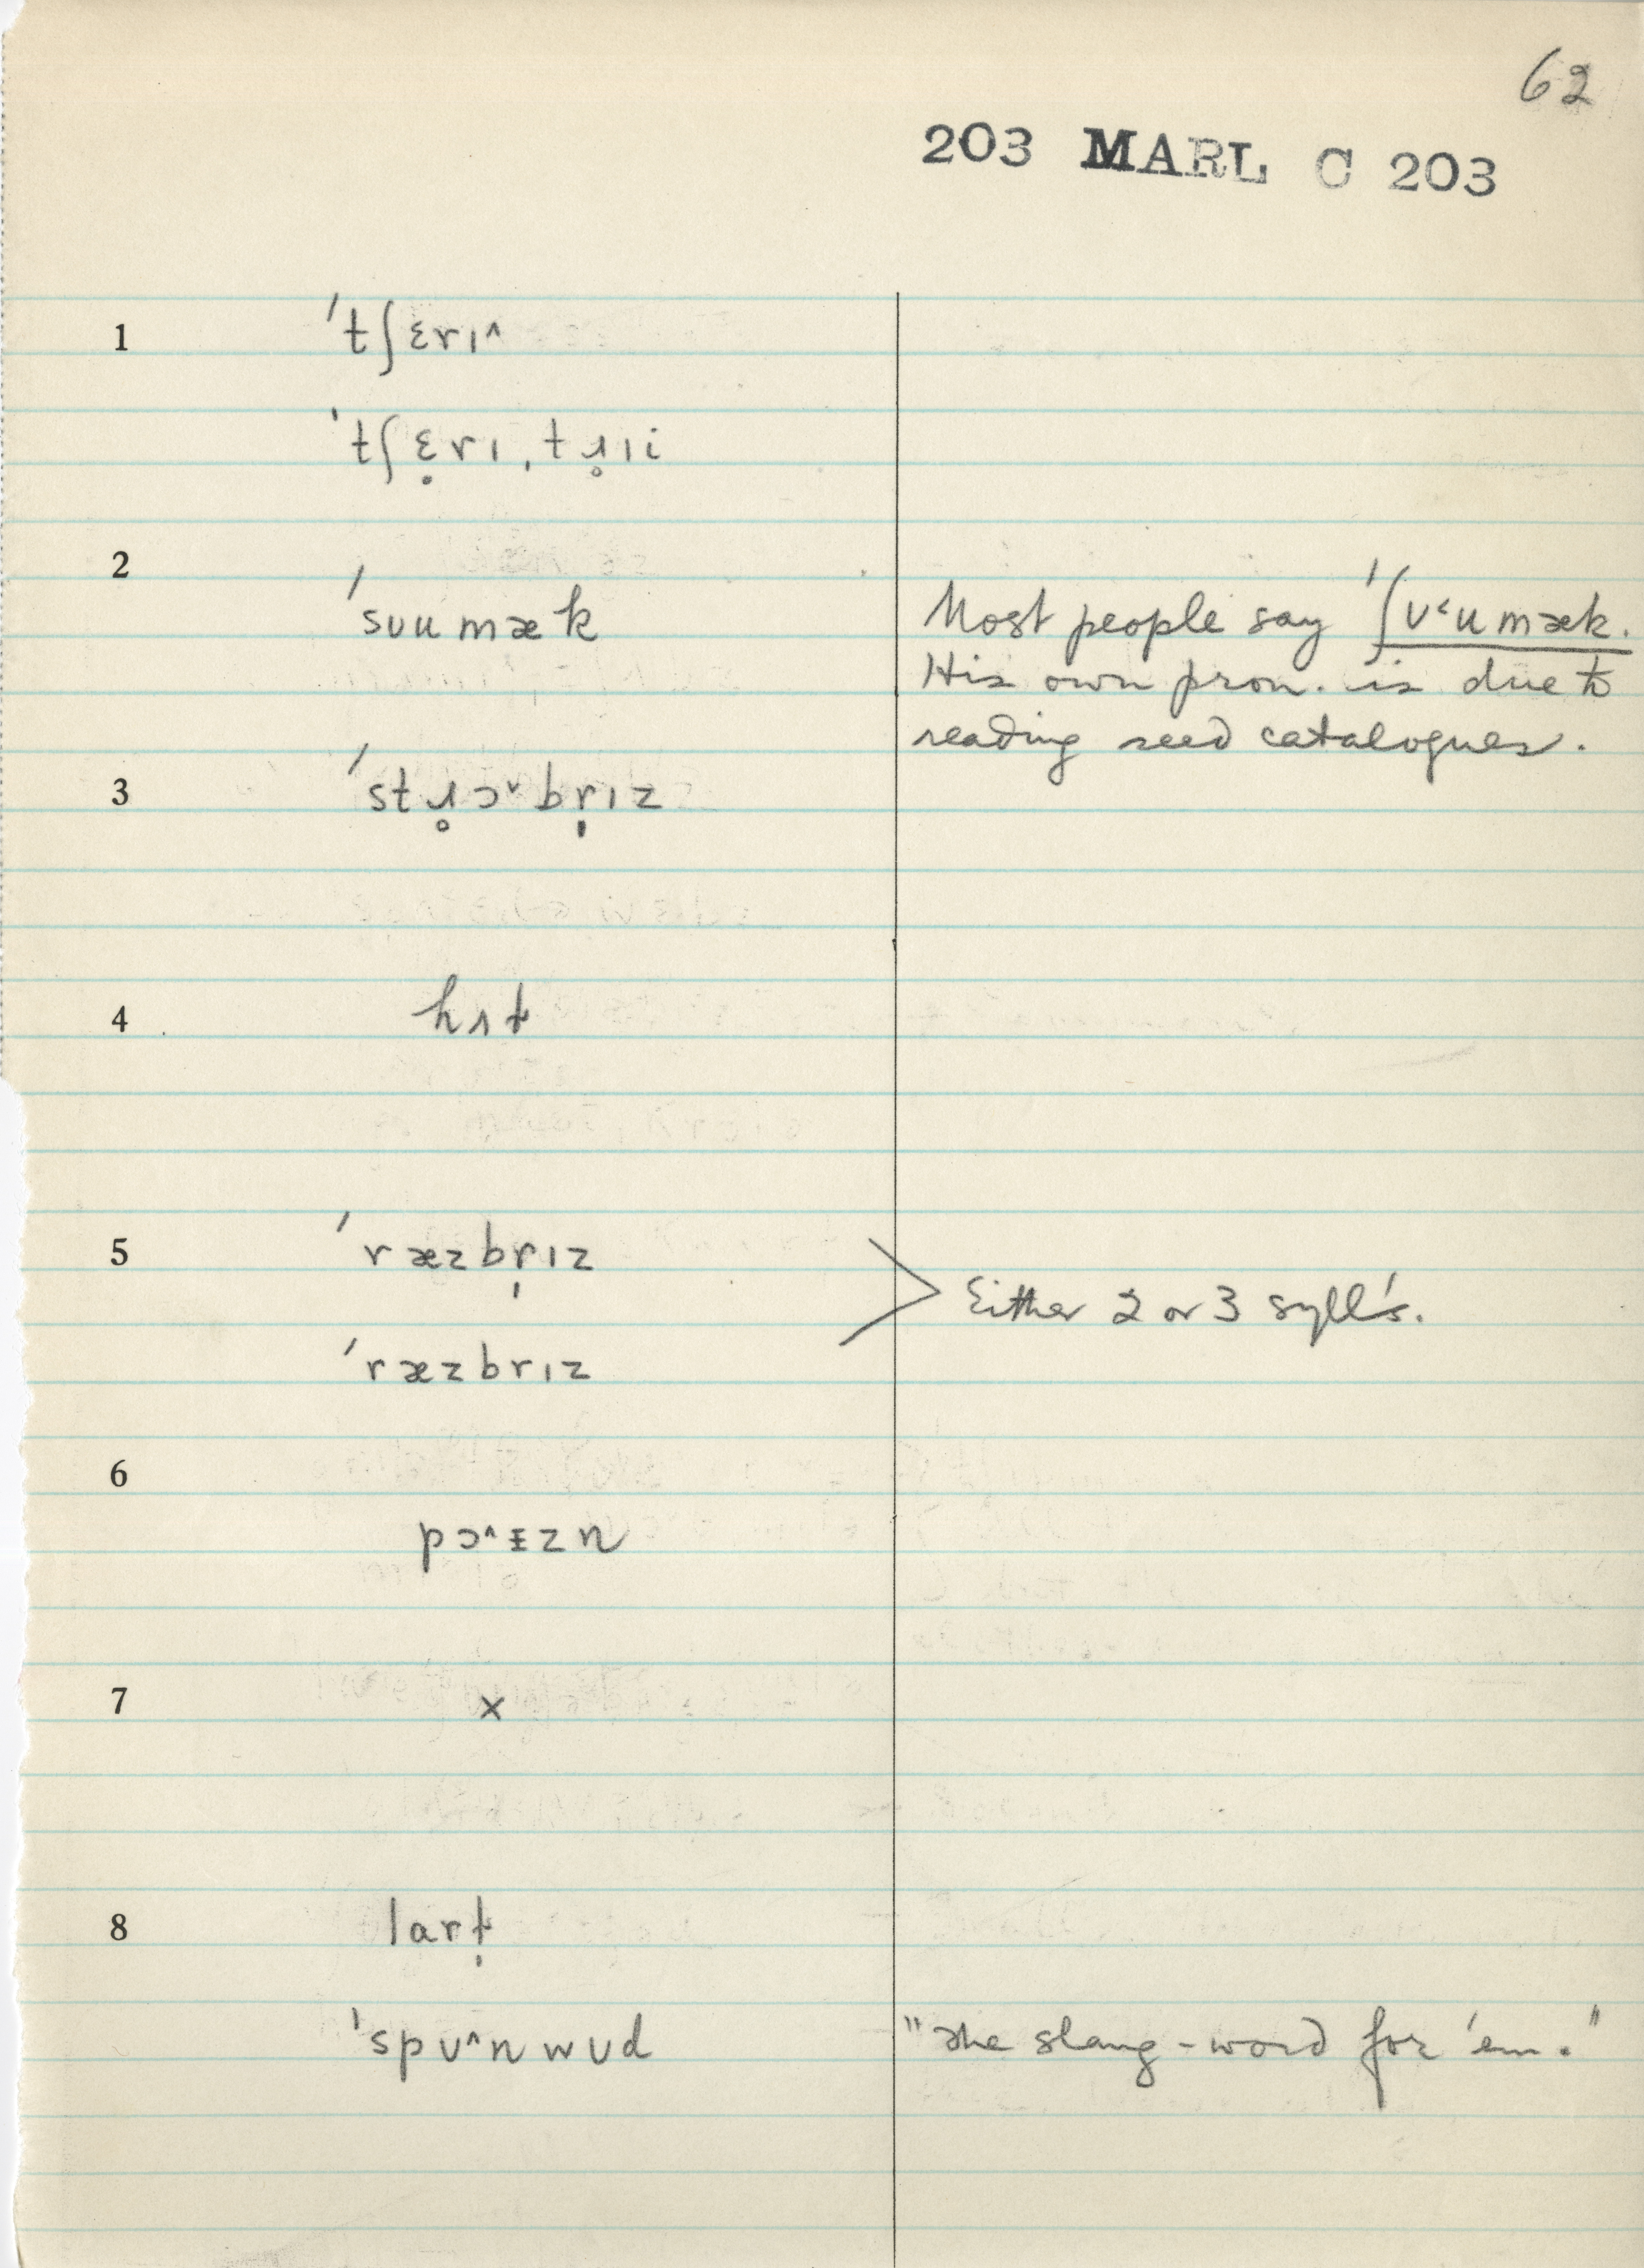 62
203 MARL C 203
1 ˈtʃɛrɪ^
ˈtʃɛ̣rɪˌtɹ̥ɪi
2
ˈsᴜu mæk Most people say ˈʃᴜ˂u mæk.
His own pron. is due to
reading seed catalogues.
3 ˈstɹ̥ɔ˅br̩ɪz
4 hɹt̬
5 ˈræzbr̩ɪz
> Either 2 or 3 syll's.
ˈræzbrɪz
6
pɔ^ɪ̵zn
7 ×
8 lart̬̣
ˈspᴜ^nwᴜd "The slang-word for 'em."